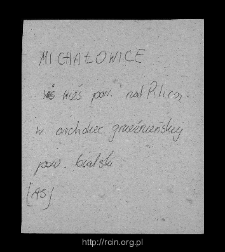 MICHAŁOWICE
wieś pow. nad Pilicą.
w archidiec. gnieźnieńskiej
pow. bialski
[AS]
http://rcin.org.pl